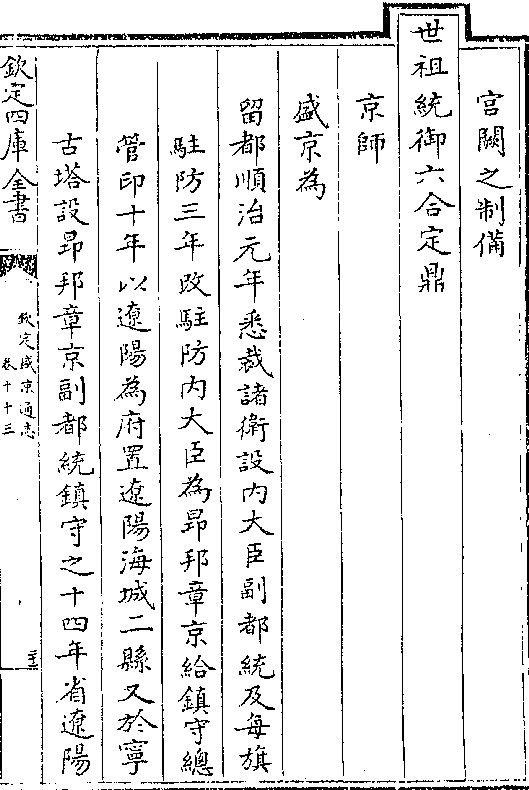 宮闕之制備
世祖統御六合定鼎
京師
盛京為
留都順治元年悉裁諸衛設内大臣副都統及每旗
駐防三年改駐防内大臣為昂邦章京給鎮守總
管印十年以遼陽為府置遼陽海城二縣又於寧
古塔設昂邦章京副都統鎮守之十四年省遼陽
欽定四庫全書
欽定盛京通志
卷二十三